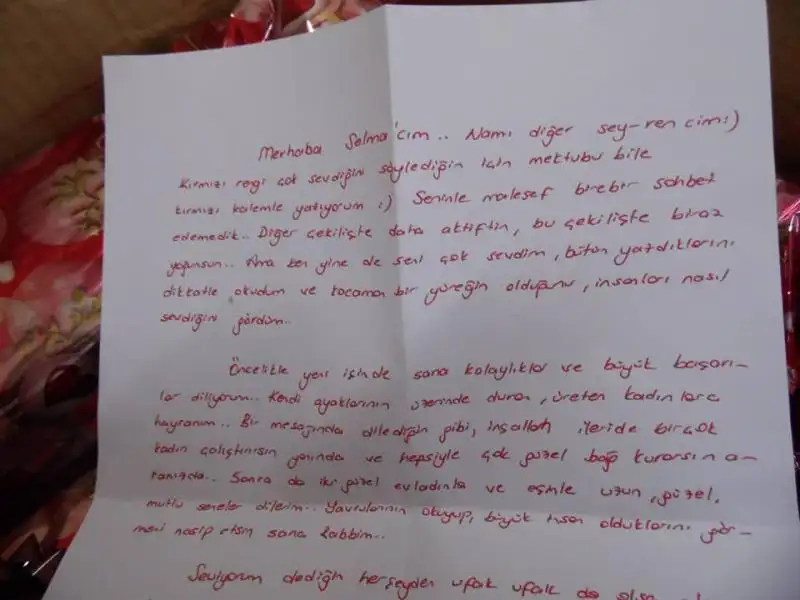 Merhaba Selma'cım.. Namı diğer sey-ren cim:)
Kırmızı rengi çok sevdiğini söylediğin için mektubu bile
kırmızı kalemle yazıyorum :) Seninle malesef birebir sohbet
edemedik.. Diğer çekilişte daha aktiftin, bu çekilişte biraz
yoğunsun.. Ama ben yine de seni çok sevdim, bütün yazdıklarını
dikkatle okudum ve kocaman bir yüreğin olduğunu, insanları nasıl
sevdiğini gördüm..
Öncelikle yeni işinde sana kolaylıklar ve büyük başarı-
lar diliyorum.. Kendi ayaklarının üzerinde duran, üreten kadınlara
hayranım.. Bir mesajında dilediğin gibi, inşallah ileride birçok
kadın çalıştırırsın yanında ve hepsiyle çok güzel bağ kurarsın a-
ranızda.. Sonra da iki güzel evladınla ve eşinle uzun, güzel,
mutlu seneler dilerim.. Yavrularının okuyup, büyük insan olduklarını gör-
meni nasip etsin sana Rabbim..
Seviyorum dediğin herşeyden ufak ufak da olsa